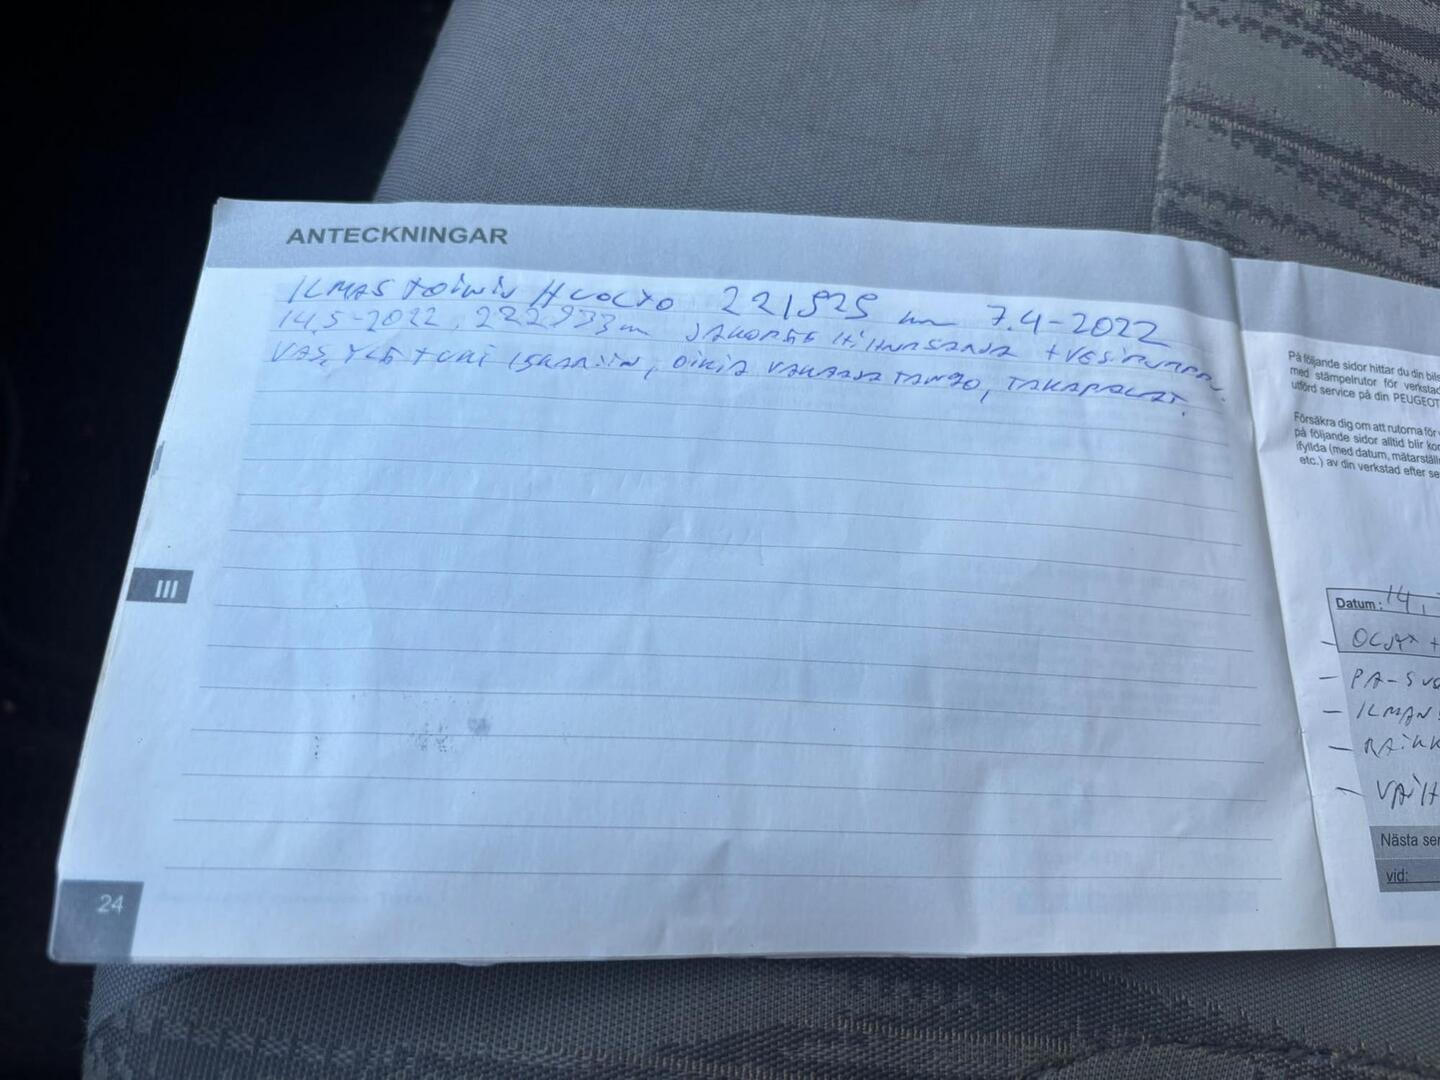 ANTECKNINGAR
ILMASTOININ HUOLTO 221525 km 7.4-2022
14.5-2022, 222933km JAKOPÄÄ HIHNASARJA + VESIPUMPPU.
VAS, YLÄ TUKI ISKARIIN, OIKIA VAKAAJA TANGO, TAKAPALAT.
III
24
På följande sidor hittar du din bils
med stämpelrutor för verkstad
utförd service på din PEUGEOT
Försäkra dig om att rutorna för
på följande sidor alltid blir kor
ifyllda (med datum, mätarställn
etc.) av din verkstad efter se
Datum: 14.
- +
- PA-SUO
- ILMANS
- RAIKK
- VAIH
Nästa ser
vid: